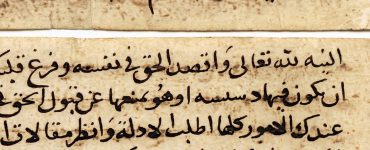 النيه لله تعالى واقصد الحق في نفسه وفرغ قلبك
ان يكون فيها دسيسه او هو يمنعها عن قبول الحق في
عندك الامور كلها اطلب الادلة وانظر مقالات ا